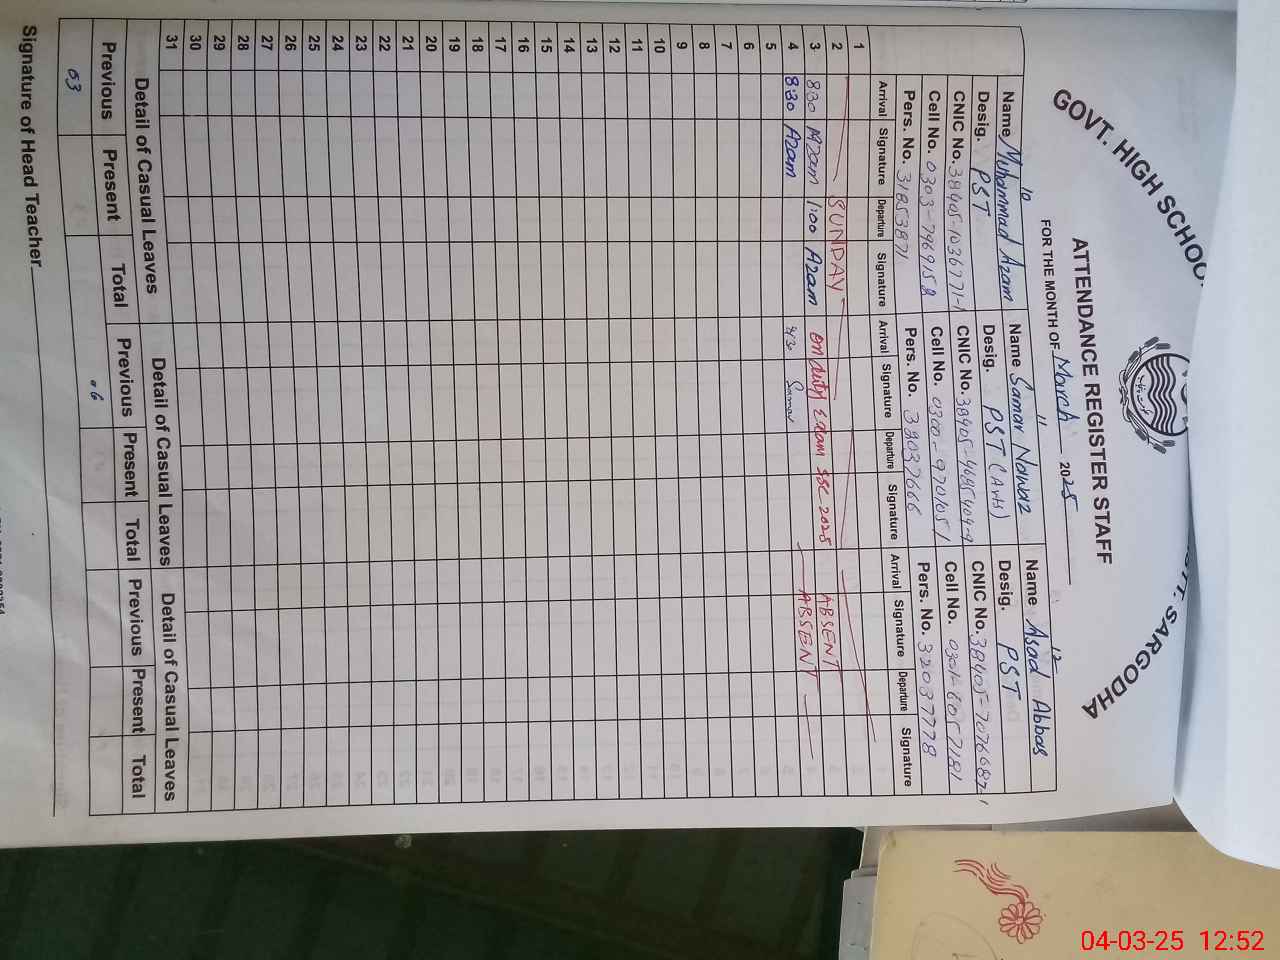 GOVT. HIGH SCHOO
TT. SARGODHA
ATTENDANCE REGISTER STAFF
FOR THE MONTH OF March 2025
10
Name Muhammad Azam
Desig. PST
CNIC No. 38405-1036771-1
Cell No. 0303-7969158
Pers. No. 31853871
11
Name Samar Nawaz
Desig. PST (Arts)
CNIC No. 38405-4685409-9
Cell No. 0300-9701051
Pers. No. 32037666
12
Name Asad Abbas
Desig. PST
CNIC No. 38405-7076687-1
Cell No. 0301-8657181
Pers. No. 32037778
Arrival Signature Departure Signature Arrival Signature Departure Signature Arrival Signature Departure Signature
1
2 SUNDAY
3 8:30 Azam 1:00 Azam on duty Exam SSC 2025 ABSENT
4 8:30 Azam 8:30 Samar ABSENT
5
6
7
8
9
10
11
12
13
14
15
16
17
18
19
20
21
22
23
24
25
26
27
28
29
30
31
Detail of Casual Leaves Detail of Casual Leaves Detail of Casual Leaves
Previous Present Total Previous Present Total Previous Present Total
03 06
Signature of Head Teacher
04-03-25 12:52